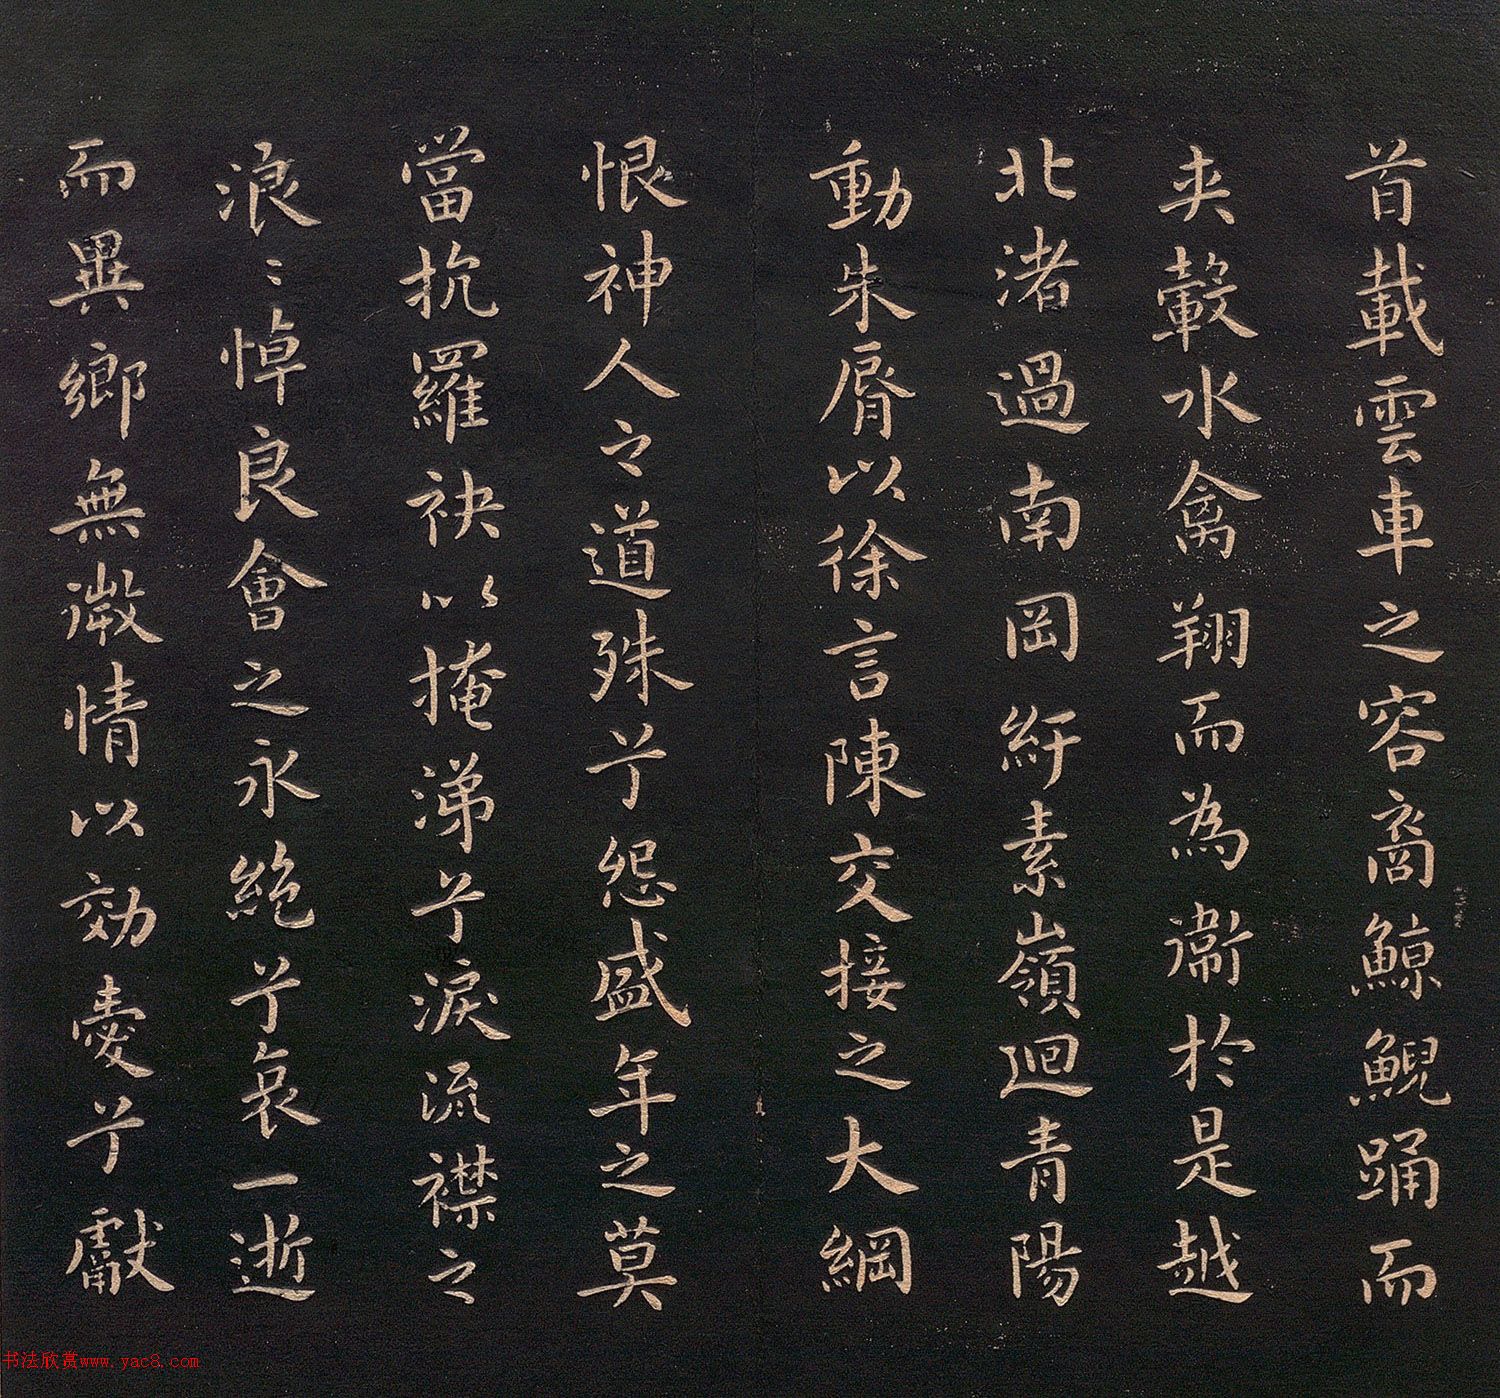 首載雲車之容裔鯨鯢踊而
夾轂水禽翔而為衞於是越
北渚過南岡紆素嶺迴青陽
動朱脣以徐言陳交接之大綱
恨神人之道殊兮怨盛年之莫
當抗羅袂以掩涕兮淚流襟之
浪〻悼良會之永絶兮哀一逝
而異鄉無微情以効愛兮獻
书法欣赏www.yac8.com